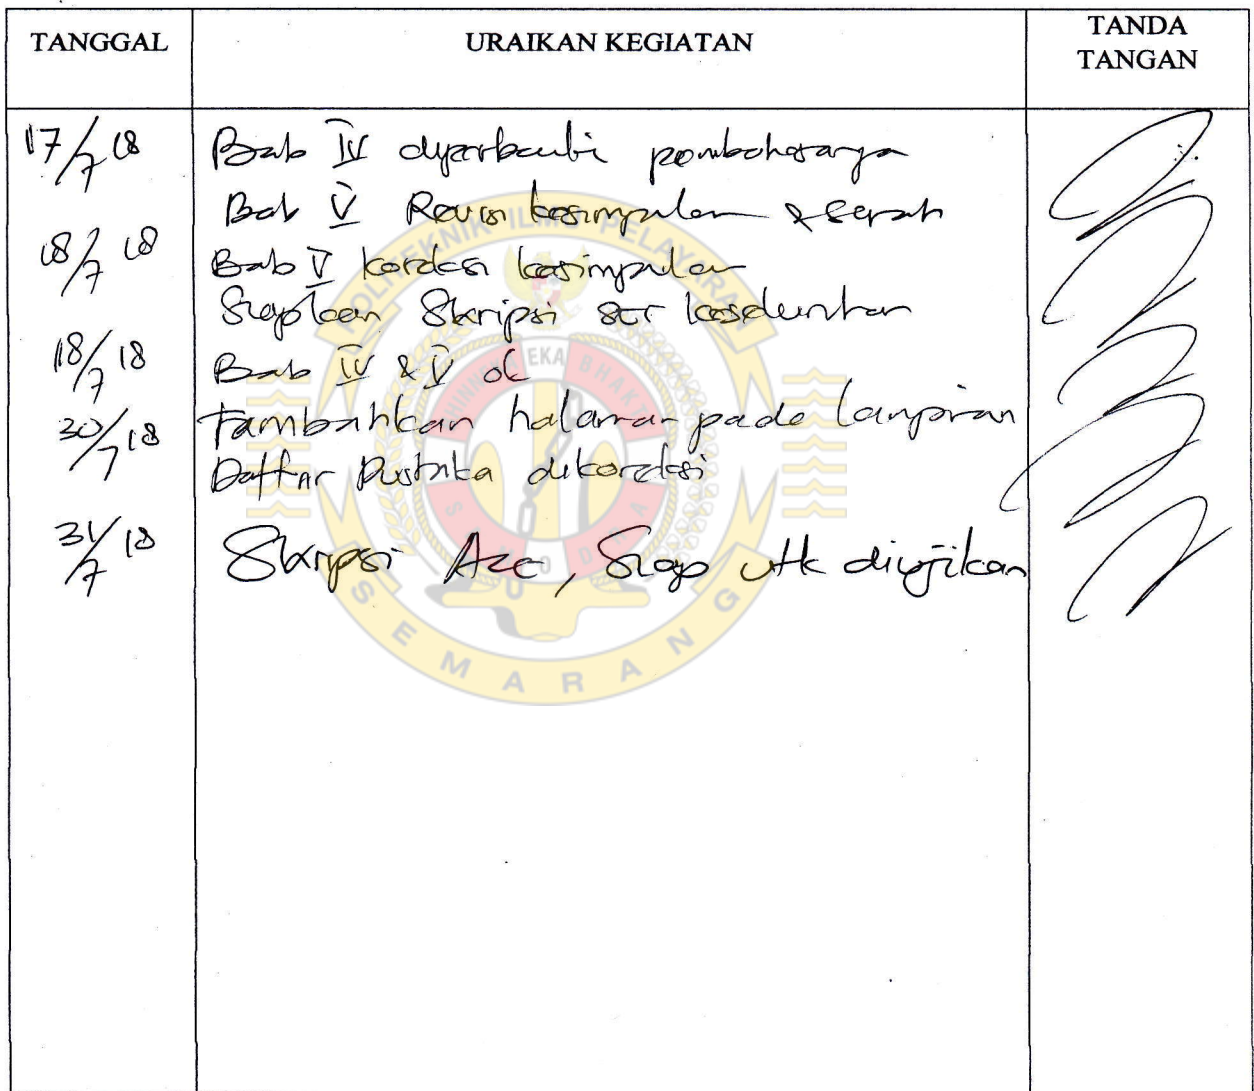 TANGGAL URAIKAN KEGIATAN TANDA TANGAN
17/7 18 Bab IV diperbaiki pembahasanya
Bab V Revisi kesimpulan & saran
18/7 18 Bab V koreksi kesimpulan
Siapkan Skripsi keseluruhan
18/7 18 Bab IV & V ok
30/7 18 Tambahkan halaman pada lampiran
Daftar Pustaka dikoreksi
31/7 18 Skripsi Acc, Siap utk diujikan
POLITEKNIK ILMU PELAYARAN
BHINNEKA EKA BHAKTI
SEMARANG